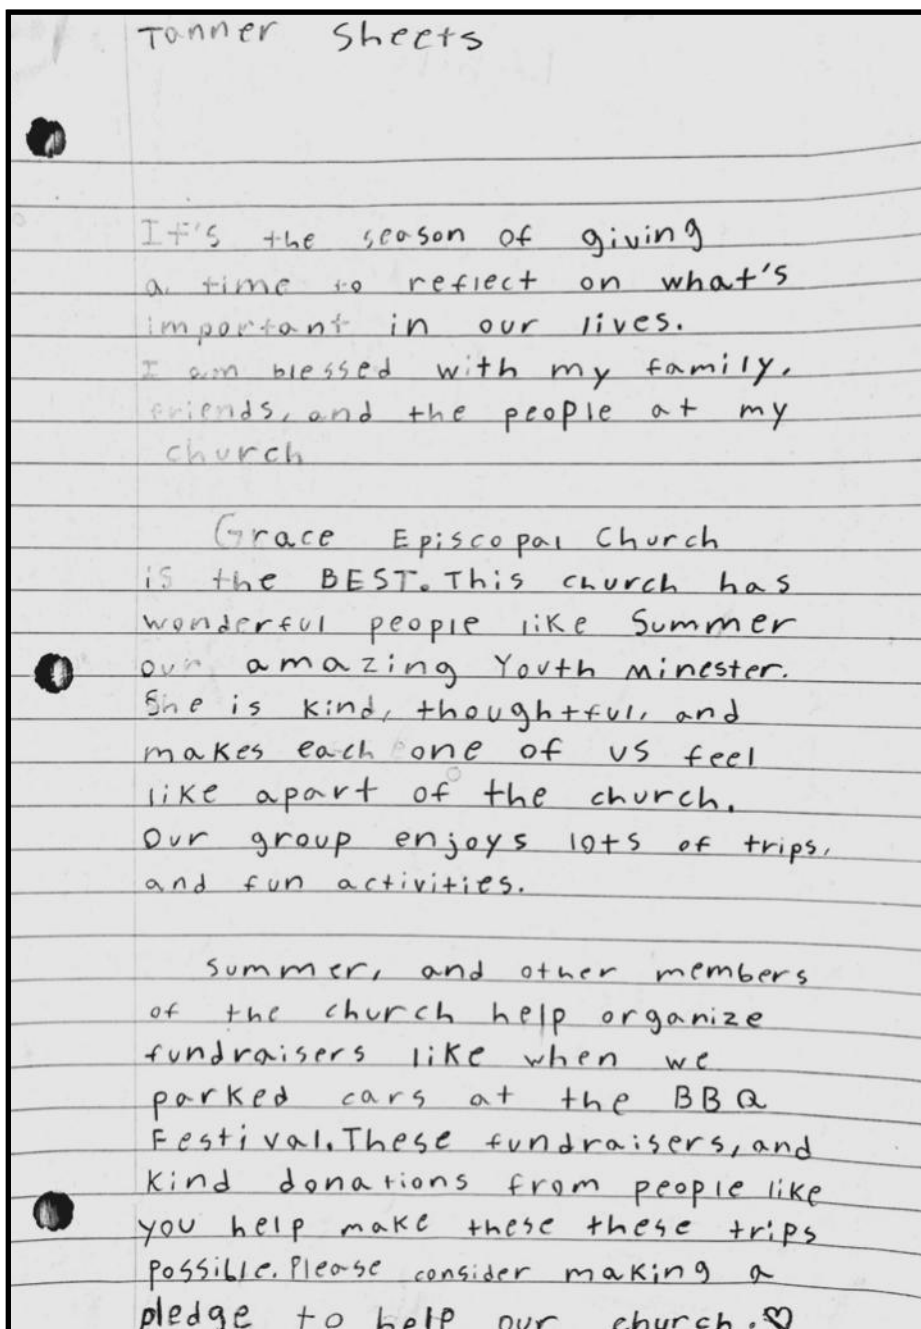 Tanner Sheets
It's the season of giving
a time to reflect on what's
important in our lives.
I am blessed with my family,
friends, and the people at my
church
Grace Episcopal Church
is the BEST. This church has
wonderful people like Summer
our amazing Youth minester.
She is kind, thoughtful, and
makes each one of us feel
like apart of the church.
Our group enjoys lots of trips,
and fun activities.
Summer, and other members
of the church help organize
fundraisers like when we
parked cars at the BBQ
Festival. These fundraisers, and
kind donations from people like
you help make these these trips
possible. Please consider making a
pledge to help our church. ♡